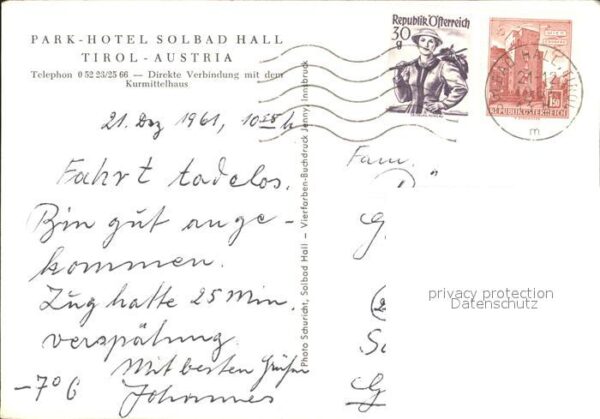 PARK-HOTEL SOLBAD HALL
TIROL - AUSTRIA
Telephon 0 52 23/25 66 — Direkte Verbindung mit dem
Kurmittelhaus
21. Dez 1961, 10 28 h
Fahrt tadelos.
Bin gut ange-
kommen.
Zug hatte 25 Min.
verspätung.
Mit besten Grüßen
-7° C Johannes
Photo Schuricht, Solbad Hall — Vierfarben-Buchdruck Jenny, Innsbruck
Republik Österreich
30
g
REPUBLIK ÖSTERREICH
1.50
SOLBAD HALL
21.12
m
Fam.
G
(2
S
G
privacy protection
Datenschutz